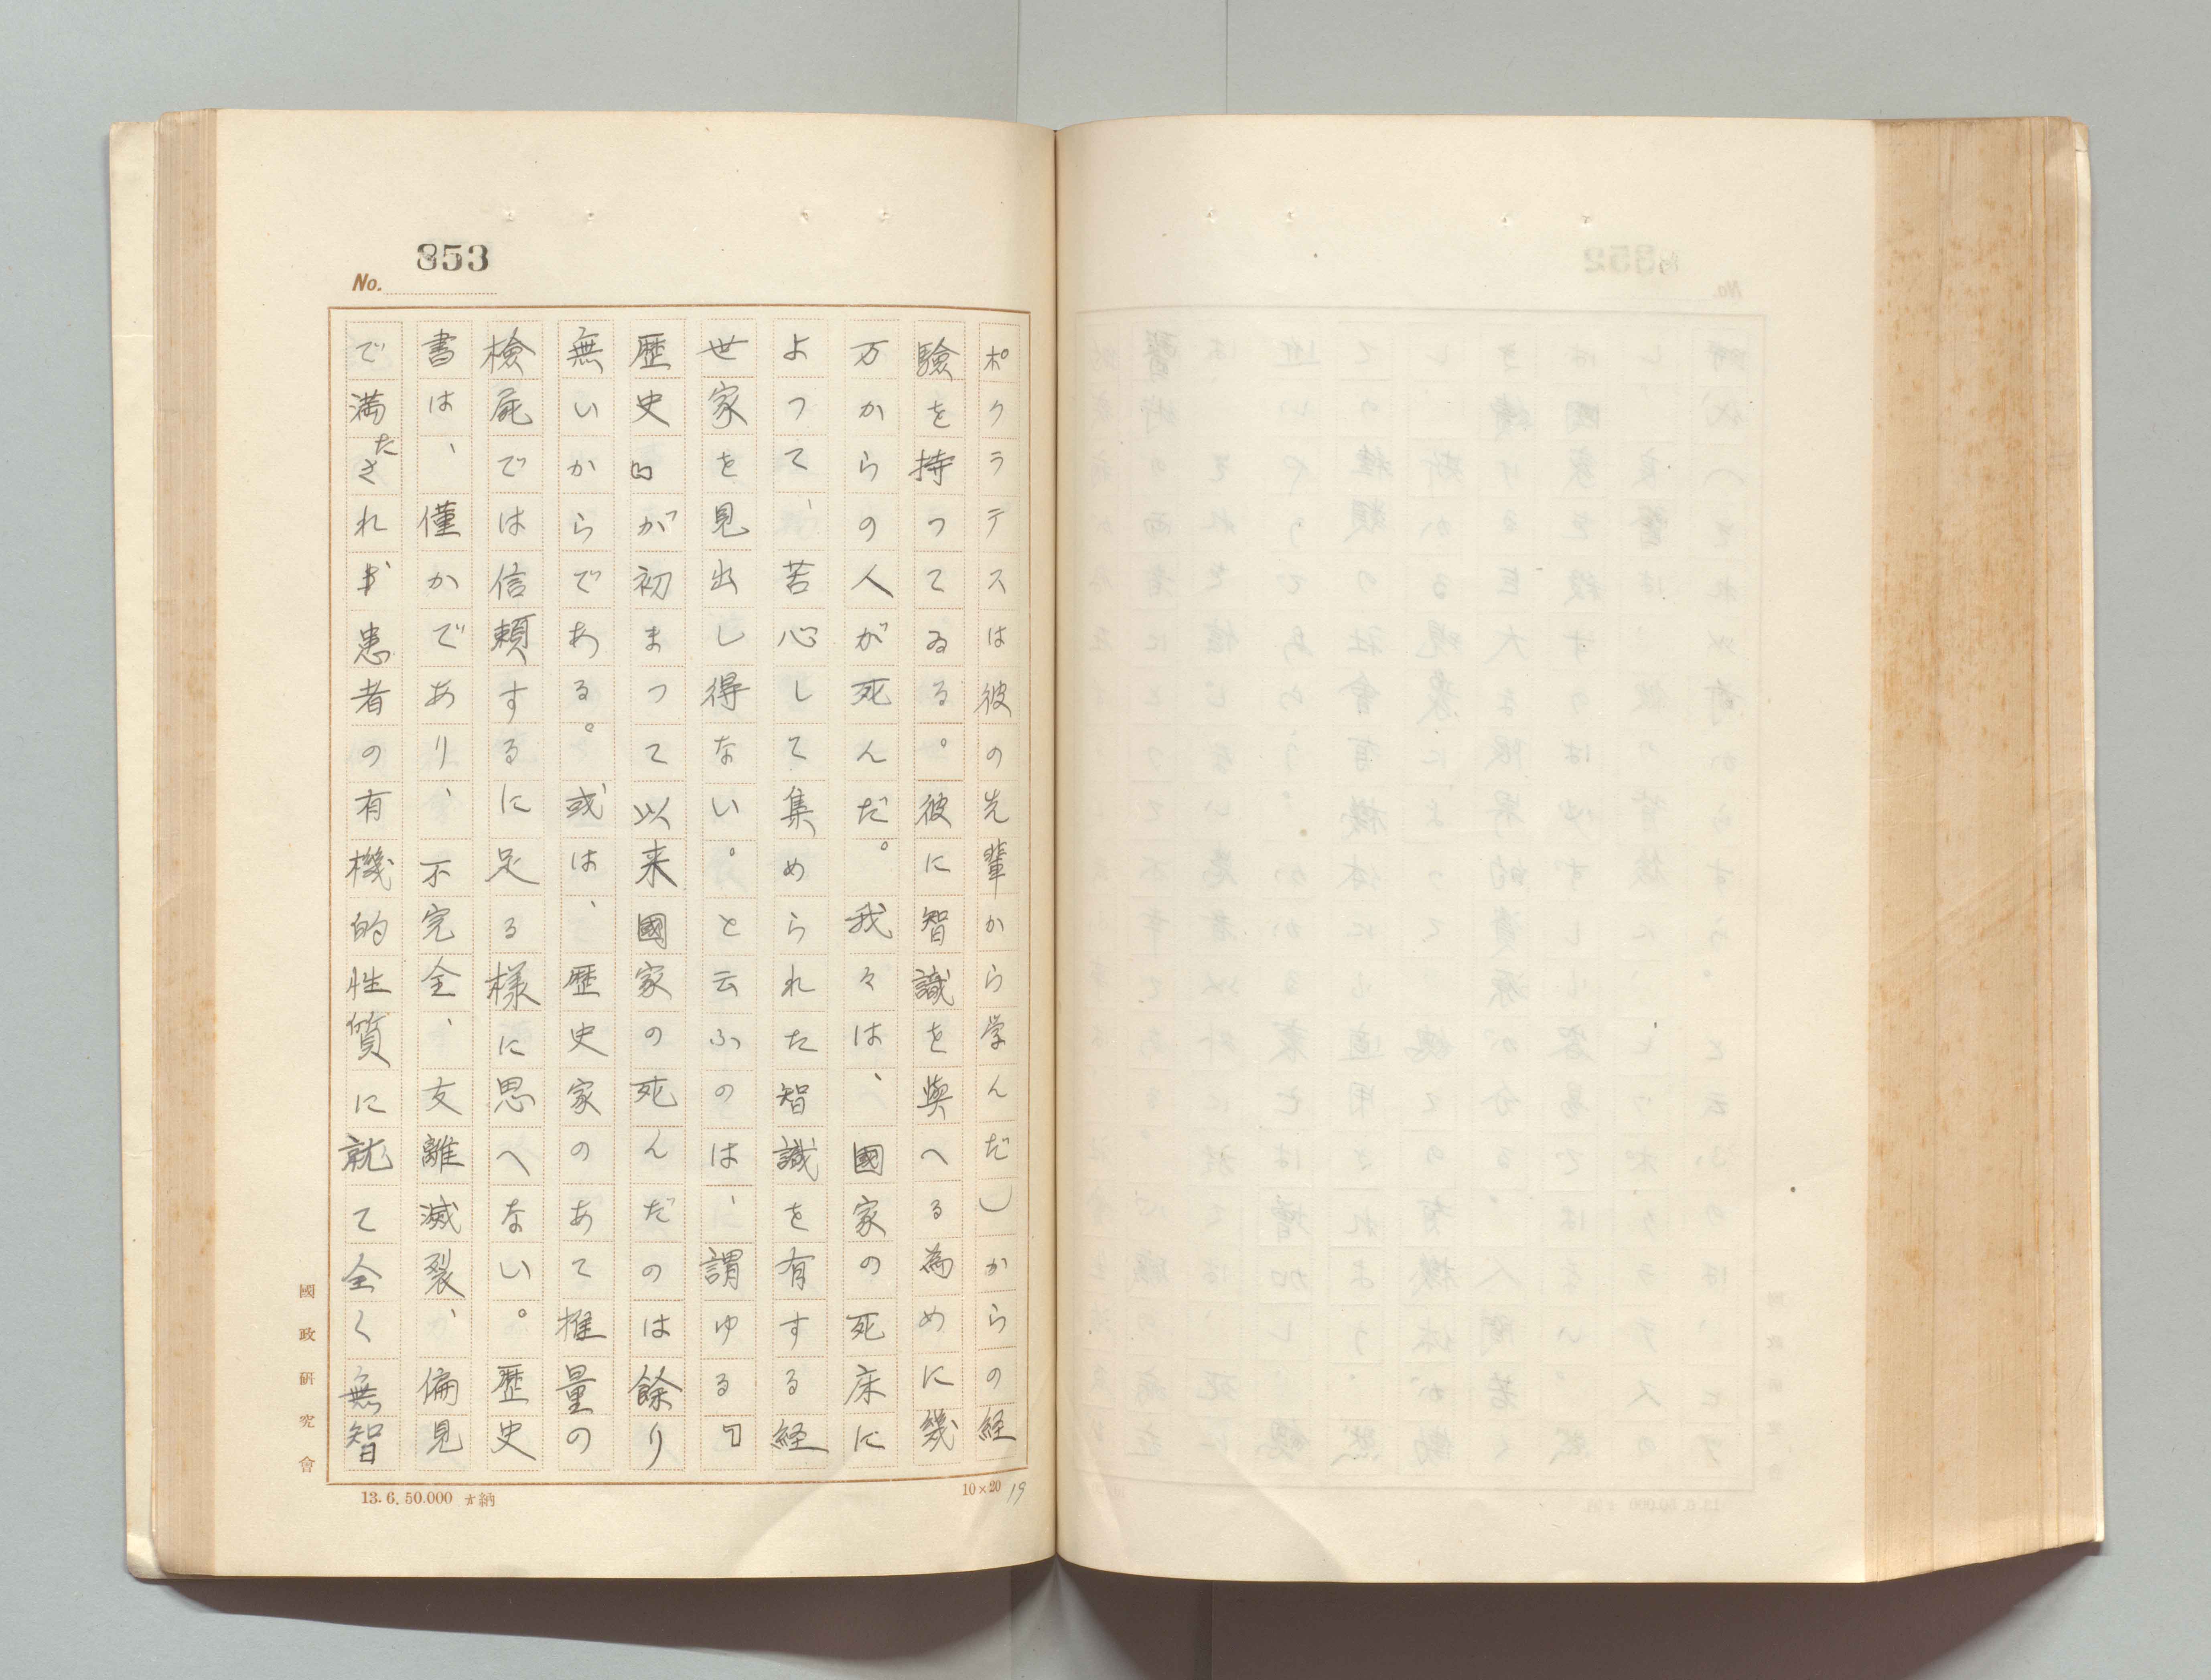 853
No.
ポクラテスは彼の先輩から学んだ)からの経
験を持つてゐる。彼に智識を與へる為めに幾
万からの人が死んだ。我々は、國家の死床に
よつて、苦心して集められた智識を有する経
世家を見出し得ない。と云ふのは、謂ゆる「
歴史」が初まつて以来國家の死んだのは餘り
無いからである。或は、歴史家のあて推量の
檢屍では信頼するに足る様に思へない。歴史
書は、僅かであり、不完全、支離滅裂、偏見
で満たされ、患者の有機的性質に就て全く無智
國政研究會
13.6.50.000 納
10×20
19